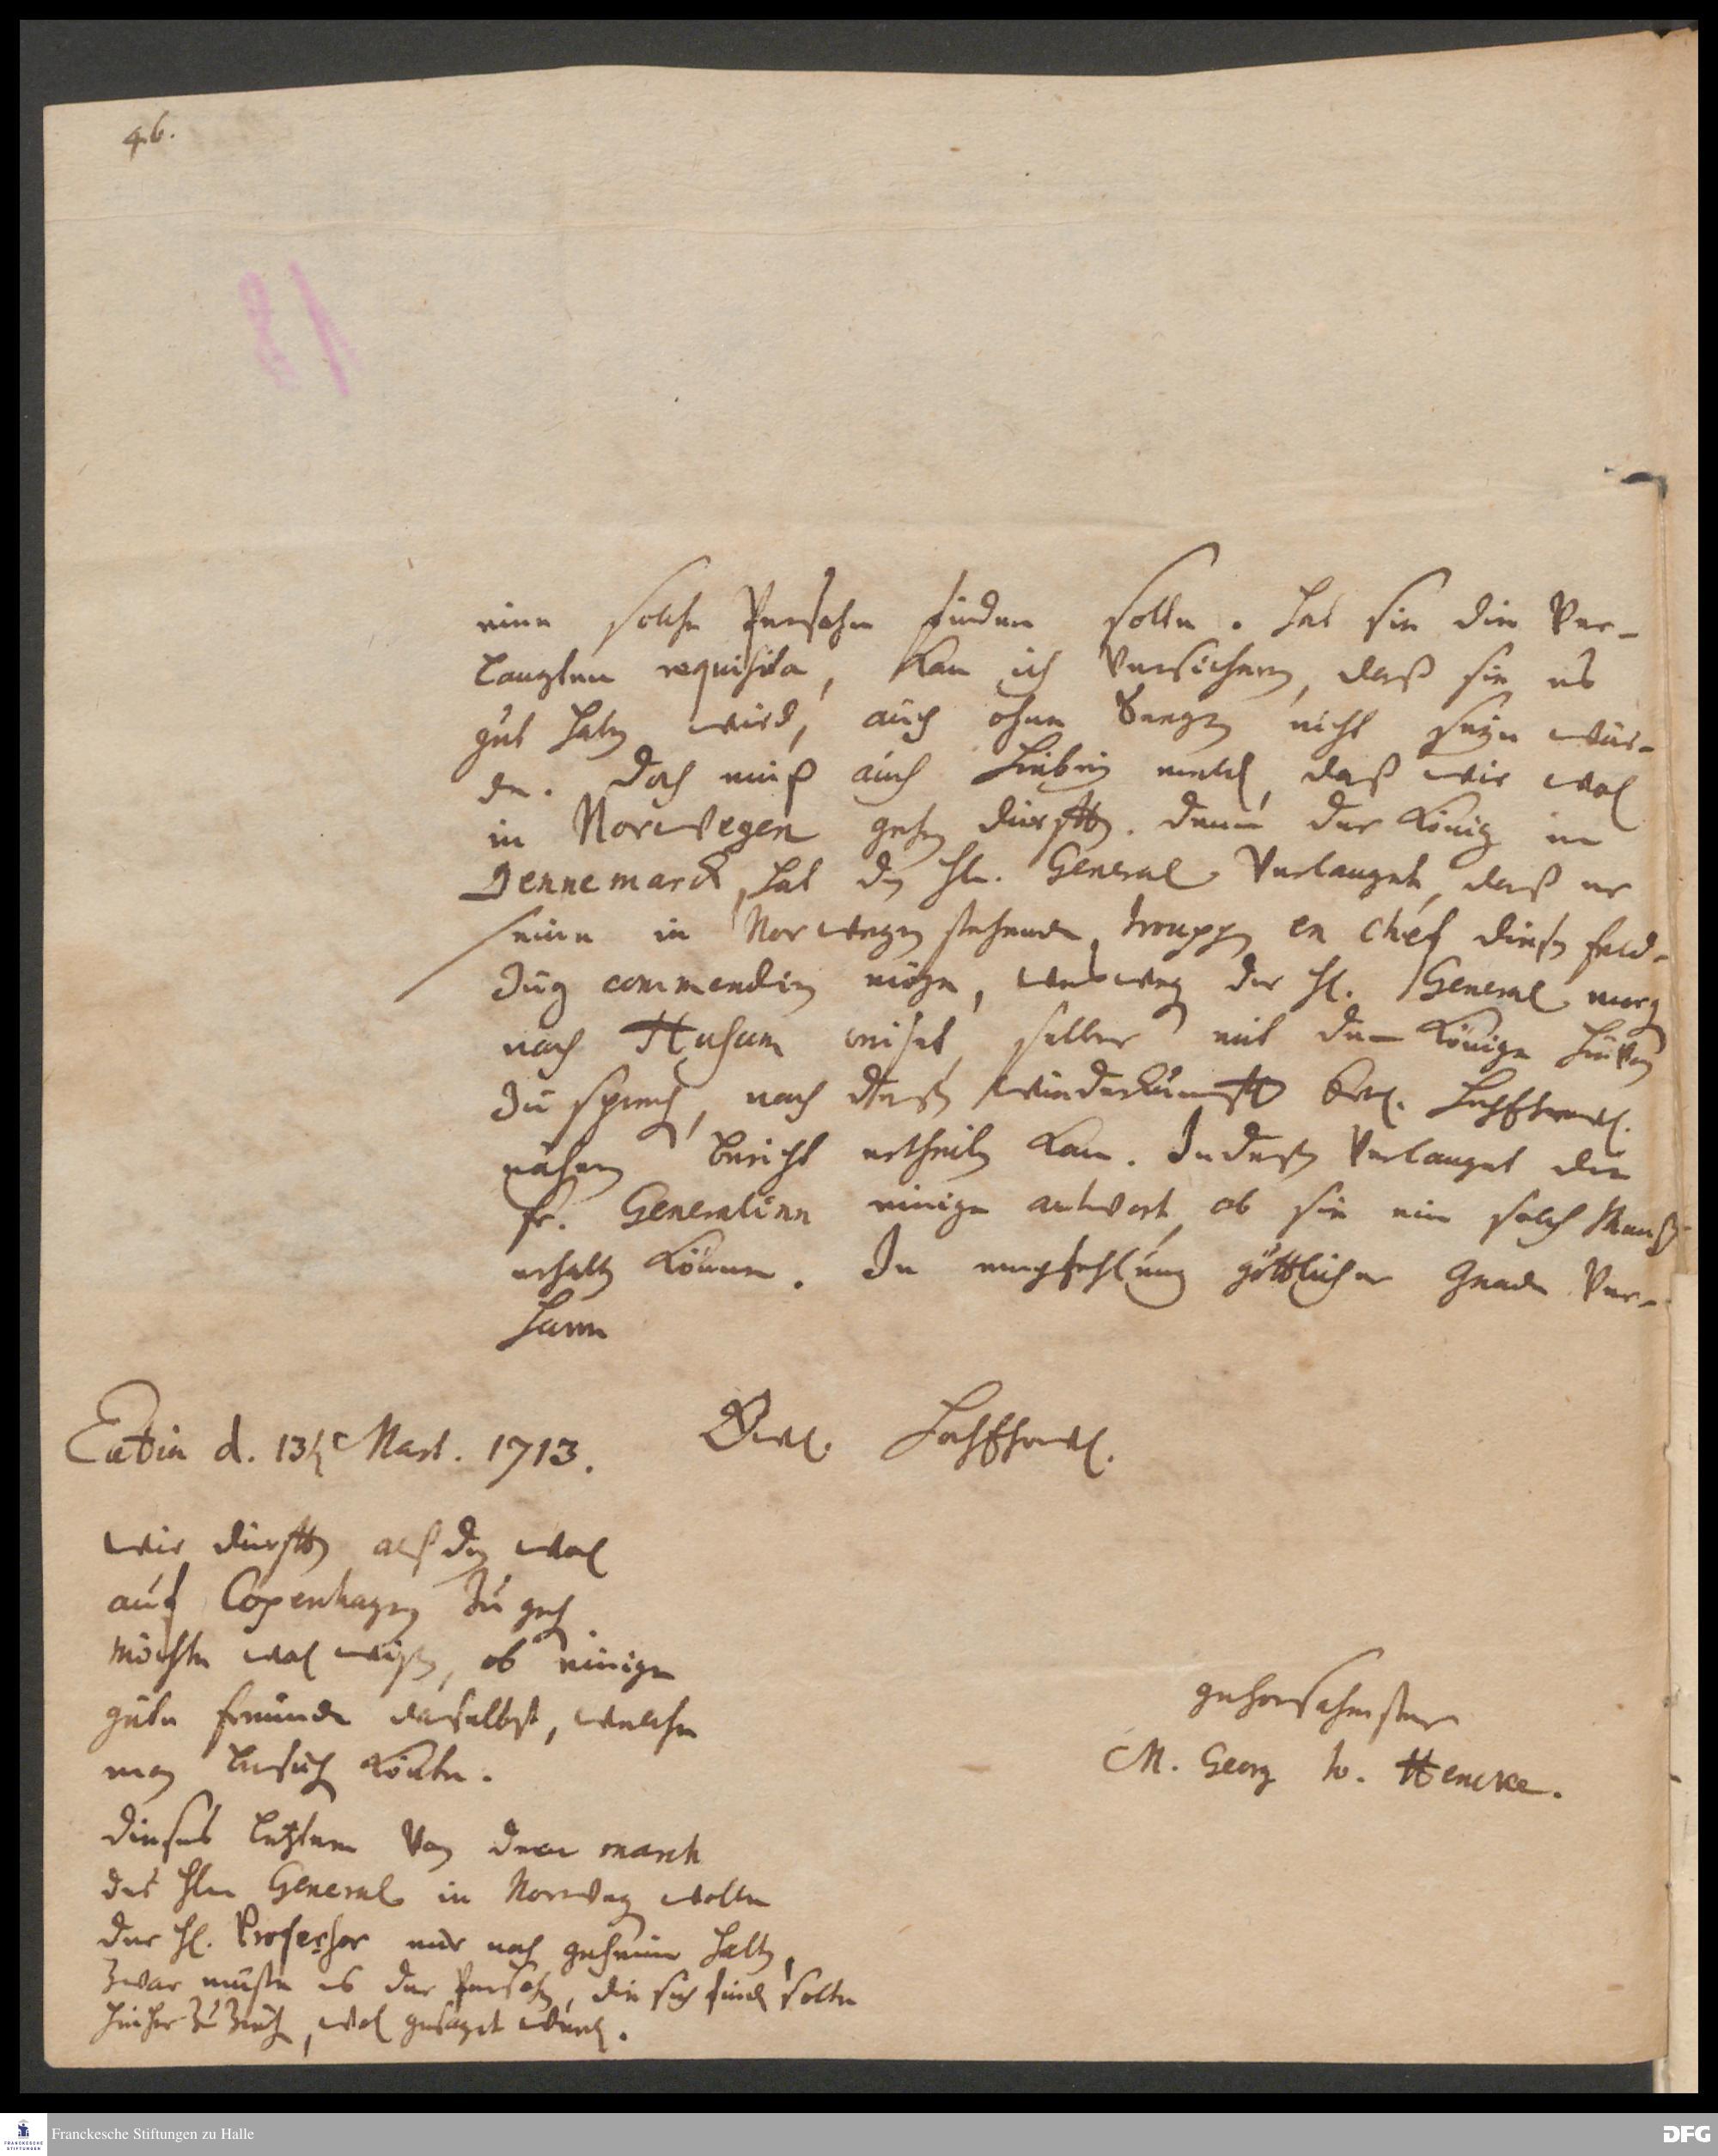 46.
18
eine solche Persohn finden solte. hat sie die Ver-
langten requisita, kan ich Versichern, daß sie es
gut haben wird, auch ohne Seegen nicht seyn wür-
de. Doch muß auch hiebey melden, daß wir wol
in Norwegen gehen dürfften. denn der König in
Dennemarck, hat den Hln. General Verlanget, daß er
seine in Norwegen stehende trouppen en chef diesen feld-
zug commendiren möge, weswegen der Hl. General morgen
nach Husum reiset, selber mit dem Könige hievon
zu sprechen, nach deßen wiederkunfft Ewl. HochEhrwl.
nähern bericht ertheilen kan. Indeßen Verlanget die
Fr. Generalinn einige antwort, ob sie ein solch Mensch
erhalten können. In empfehlung göttlicher Gnade Ver-
harre
Eutin d. 13t Mart. 1713.
Ewl. HochEhrwl.
wir dürfften alsden wol
auf Copenhagen zu gehen
möchte wol wißen, ob einige
gute freunde daselbst, welche
man besuchen könte.
dieses letztere Von dem march
des Hln General in Norwegen wolle
der Hl. Professor nur noch geheim halten,
zwar müste es der Persohn, die sich finden solte
hieher zu ziehen, wol gesaget werden.
gehorsahmster
M. Georg Jo. Hencke.
Franckesche Stiftungen zu Halle
FRANCKESCHE STIFTUNGEN
DFG